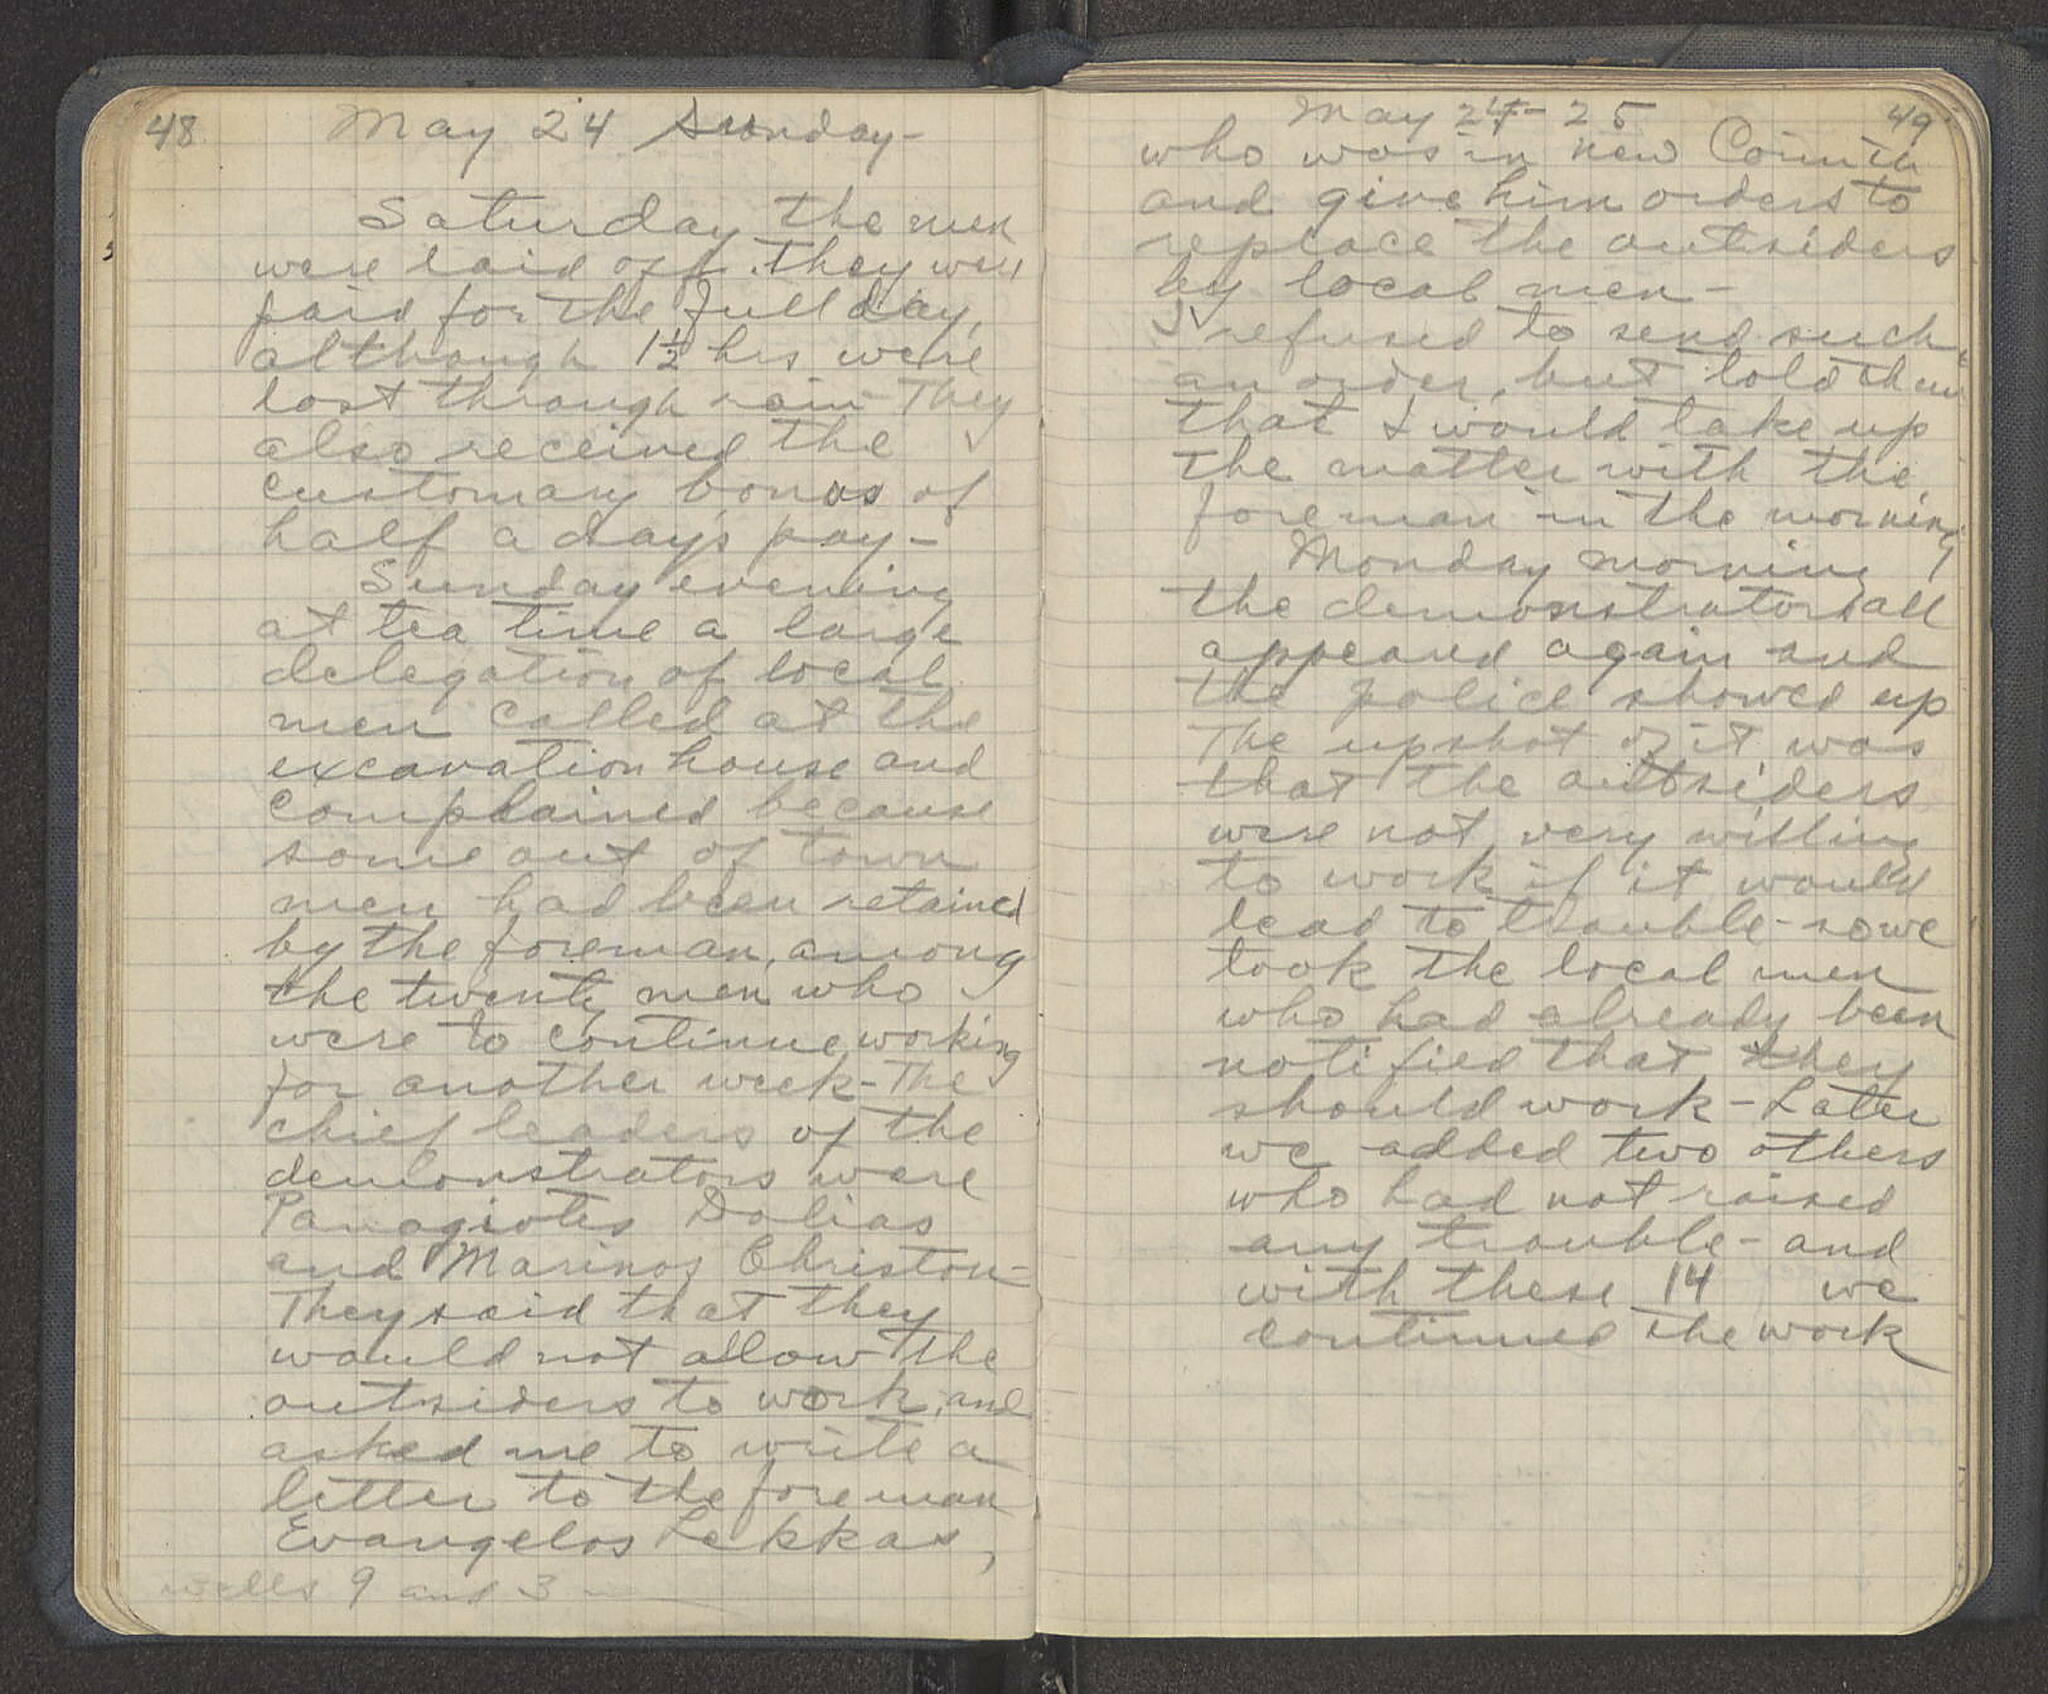 48
May 24 Sunday-
Saturday the men
were laid off. they were
paid for the full day,
although 1½ hrs were
lost through rain- They
also received the
customary bonus of
half a day's pay-
Sunday evening
at tea time a large
delegation of local
men called at the
excavation house and
complained because
some out of town
men had been retained
by the foreman, among
the twenty men who
were to continue working
for another week- The
chief leaders of the
demonstrators were
Panagiotes Dolias
and Marinos Christou-
They said that they
would not allow the
outsiders to work, and
asked me to write a
letter to the foreman
Evangelos Lekkas,
wells 9 and 3-
May 24- 25
49
who was in new Corinth
and give him orders to
replace the outsiders
by local men-
I refused to send such
an order, but told them
that I would take up
the matter with the
foreman in the morning
Monday morning
the demonstrators all
appeared again and
the police showed up
The upshot of it was
that the outsiders
were not very willing
to work if it would
lead to trouble- so we
took the local men
who had already been
notified that they
should work- Later
we added two others
who had not raised
any trouble- and
with these 14 we
continued the work